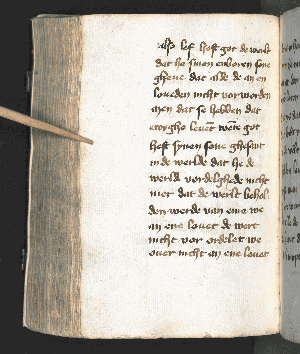 Also lef heft got de werlt
dat he sinen enboren sone
gheue dat alde de an en
loueden nicht vorworden
men dat se hebben dat
ewyghe leuēt wēte got
heft synen sone ghesant
in de werlde dat he de
werld vordelghede nicht
mer dat de werlt behol
den werde van eme we
an ene louet de wert
nicht vor ordelet we
ouer nicht an ene louet